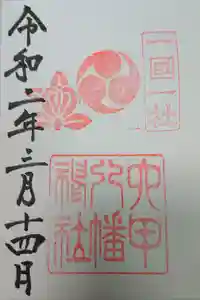 一国一社
六甲
八幡
神社
令和二年三月十四日